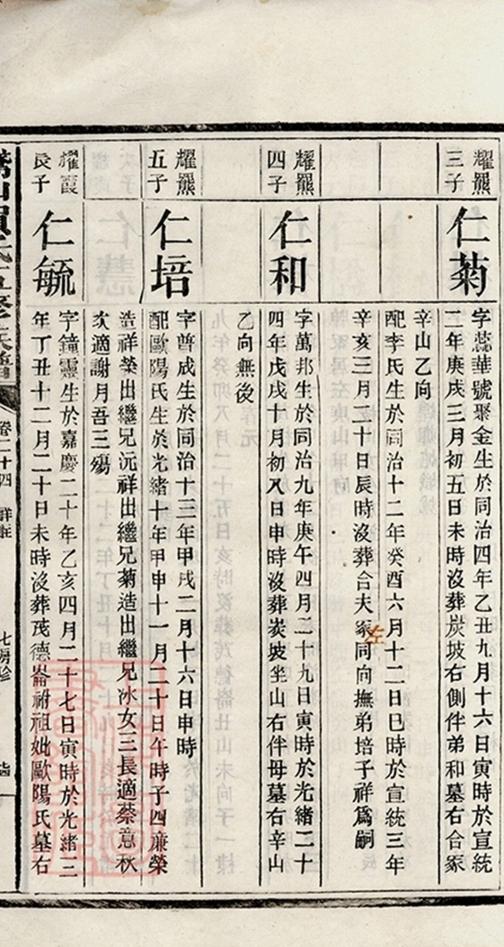 耀羆
三子
仁菊
字蕊華號聚金生於同治四年乙丑九月十六日寅時於宣統
二年庚戌三月初五日未時沒葬炭坡右側伴弟和墓右合冢
辛山乙向
配李氏生於同治十二年癸酉六月十二日巳時於宣統三年
辛亥三月二十日辰時沒葬合夫冢同向撫弟培子祥爲嗣
耀羆
四子
仁和
字萬邦生於同治九年庚午四月二十九日寅時於光緒二十
四年戊戌十月初八日申時沒葬炭坡坐山右伴母墓右辛山
乙向無後
耀羆
五子
仁培
字普成生於同治十三年甲戌二月十六日申時
配歐陽氏生於光緒十年甲申十一月二十日午時子四廉榮
造祥榮出繼兄沅祥出繼兄菊造出繼兄冰女三長適蔡意秋
次適謝月吾三殤
耀霞
長子
仁毓
字鐘靈生於嘉慶二十年乙亥四月二十七日寅時於光緒三
年丁丑十二月二十日未時沒葬茂德崙祔祖妣歐陽氏墓右
氏五修氏譜
卷二十四